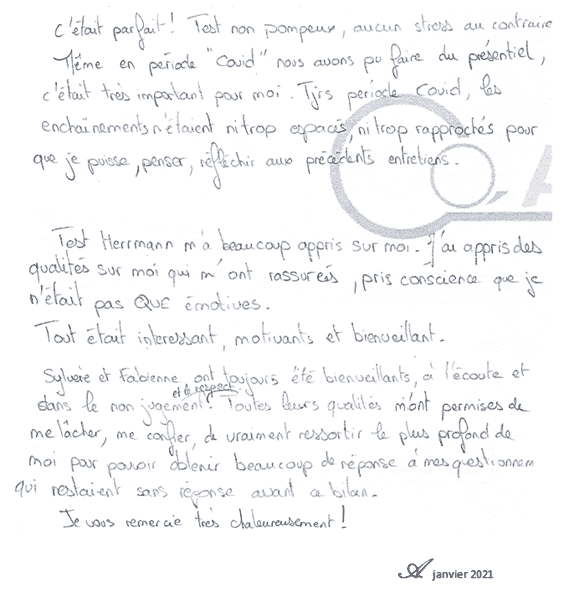 c'était parfait! Test non pompeux, aucun stress au contraire
Même en période "Covid" nous avons pu faire du présentiel,
c'était très important pour moi. Tjrs période Covid, les
enchaînements n'étaient ni trop espacés, ni trop rapprochés pour
que je puisse, penser, réfléchir aux précédents entretiens.
Test Herrmann m'a beaucoup appris sur moi. J'ai appris des
qualités sur moi qui m'ont rassurées, pris conscience que je
n'était pas QUE émotives.
Tout était interessant, motivants et bienveillant.
Sylvère et Fabienne ont toujours été bienveillants, à l'écoute et
et le respect
dans le non jugement! Toutes leurs qualités m'ont permises de
me lâcher, me confier, de vraiment ressortir le plus profond de
moi pour pouvoir obtenir beaucoup de réponse à mes questionnem
qui restaient sans réponse avant ce bilan.
Je vous remercie très chaleureusement!
janvier 2021